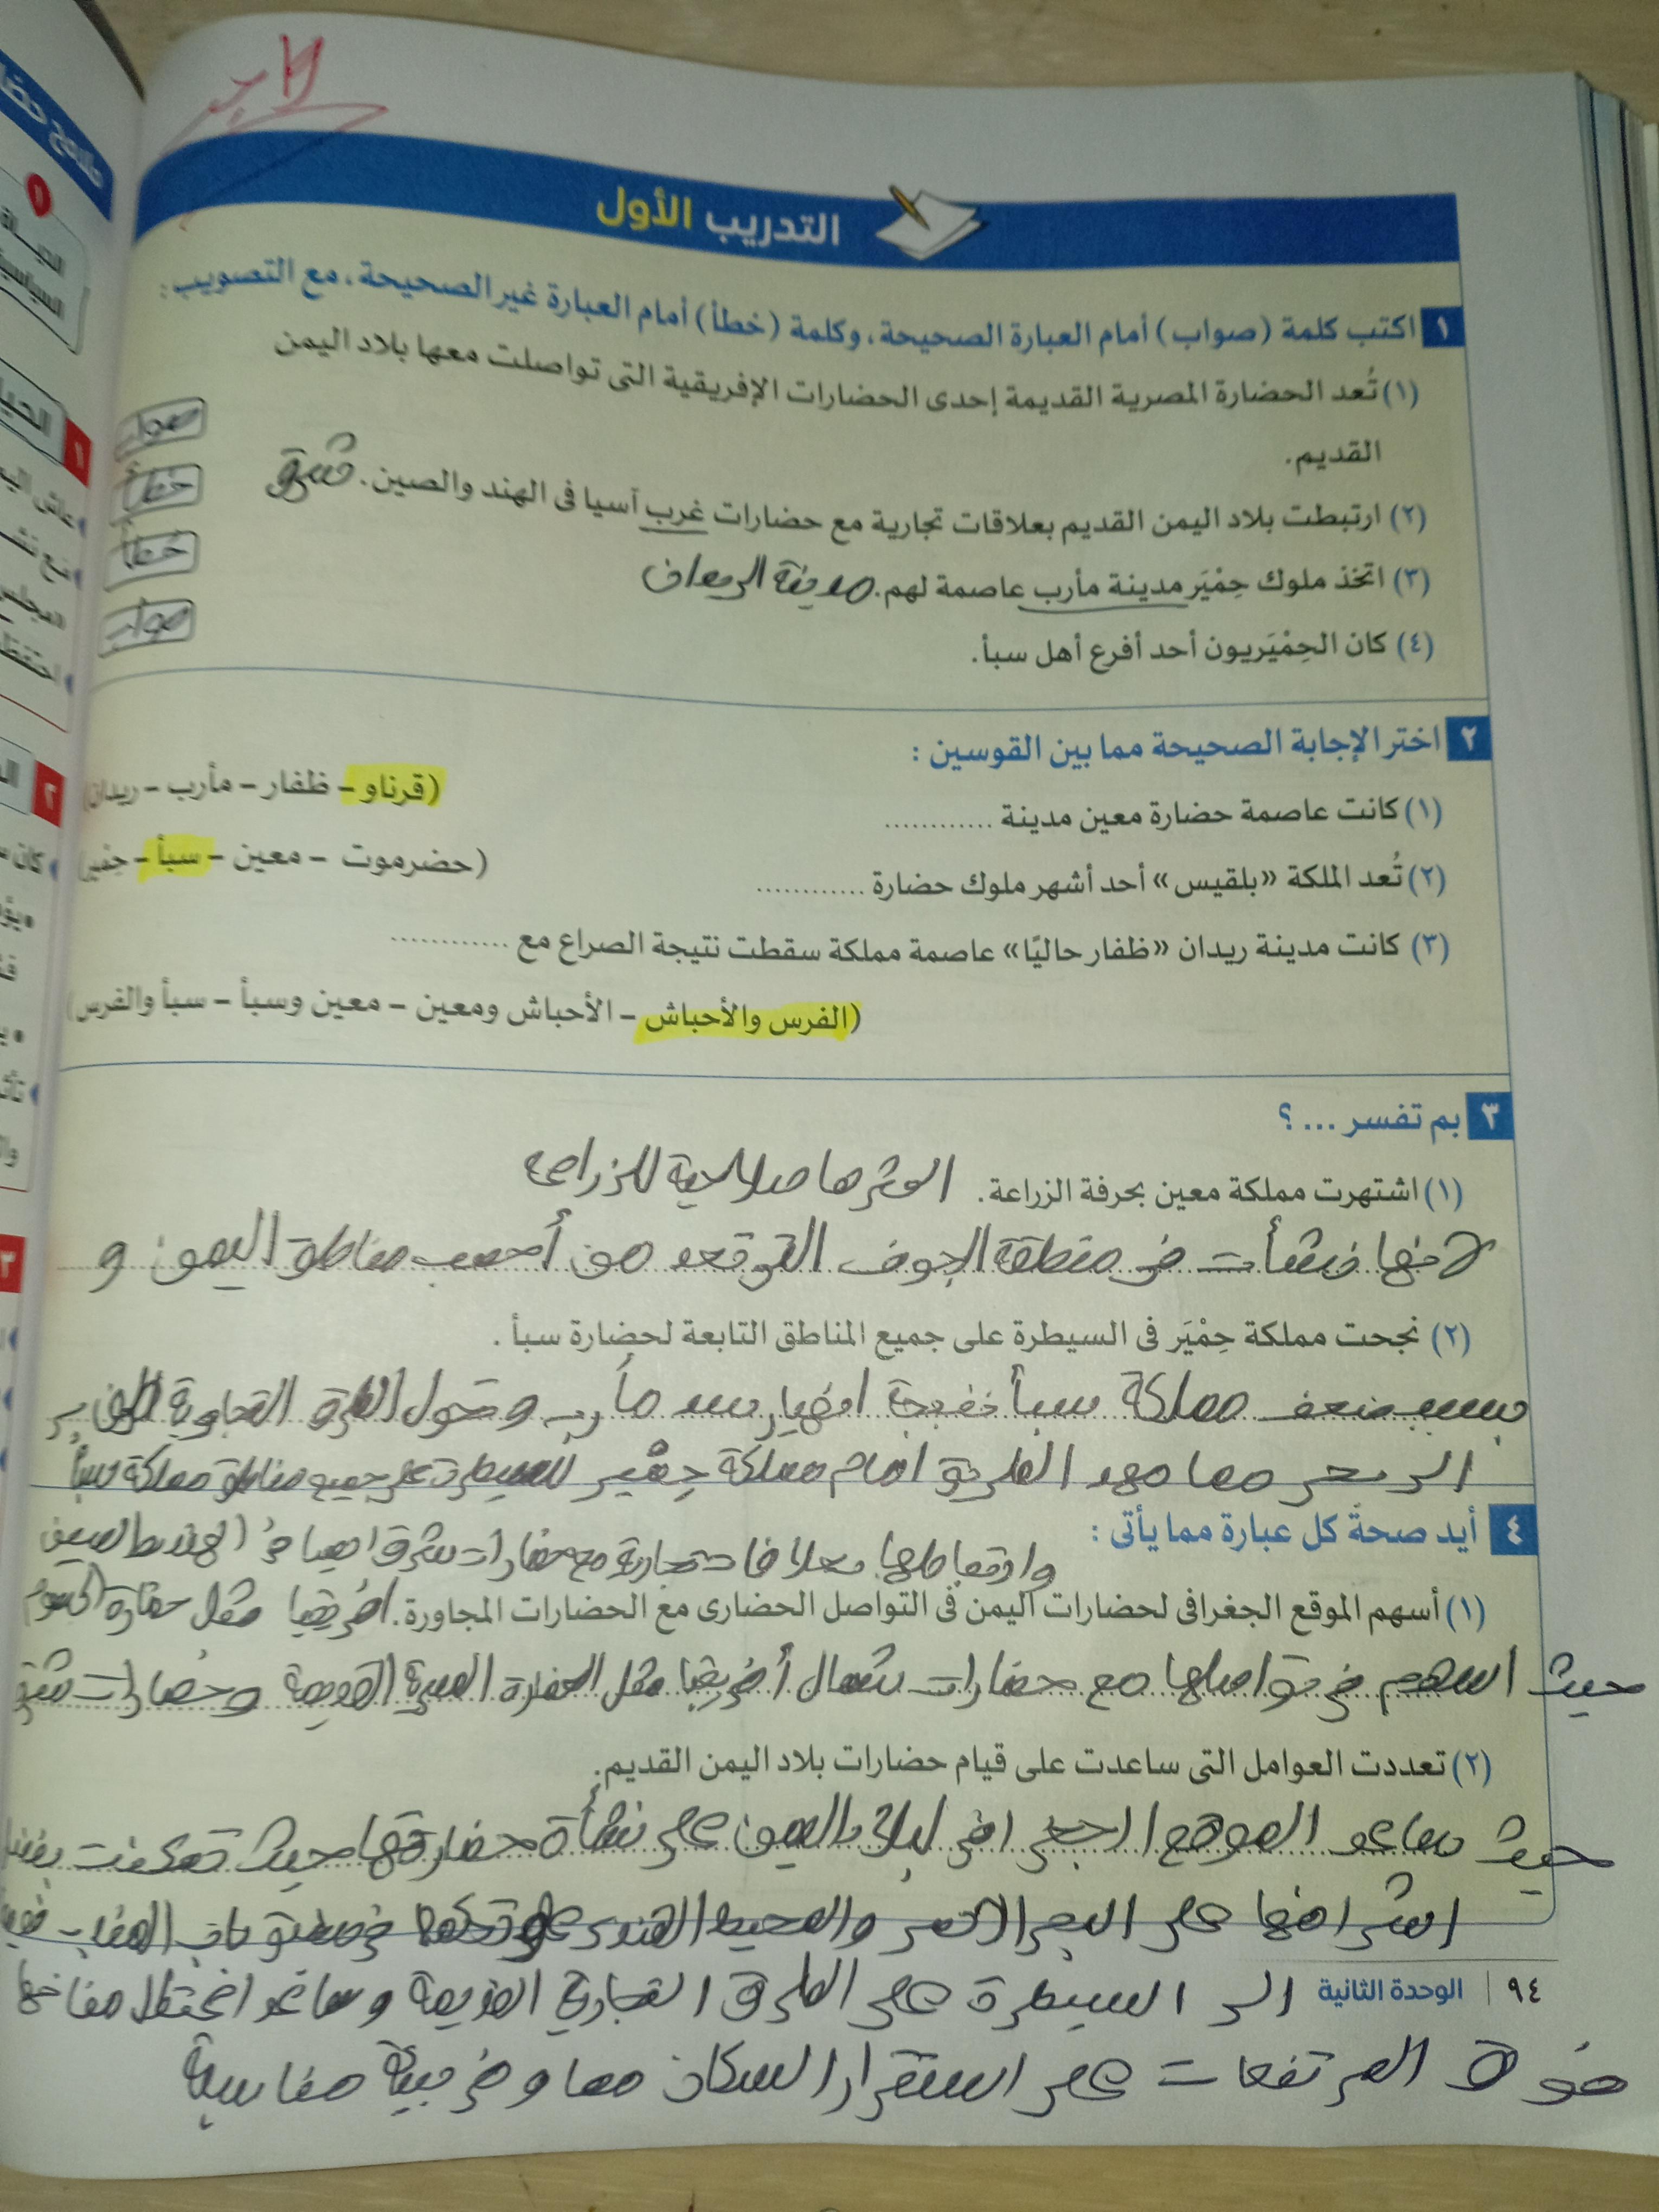 التدريب الأول
١ اكتب كلمة (صواب) أمام العبارة الصحيحة، وكلمة (خطأ) أمام العبارة غير الصحيحة، مع التصويب :
(١) تُعد الحضارة المصرية القديمة إحدى الحضارات الإفريقية التى تواصلت معها بلاد اليمن
القديم. صواب
(٢) ارتبطت بلاد اليمن القديم بعلاقات تجارية مع حضارات غرب آسيا فى الهند والصين. شرق خطأ
(٣) اتخذ ملوك حِمْيَر مدينة مأرب عاصمة لهم. مدينة خطأ
(٤) كان الحِمْيَريون أحد أفرع أهل سبأ. صواب
٢ اختر الإجابة الصحيحة مما بين القوسين :
(١) كانت عاصمة حضارة معين مدينة ............ (قرناو – ظفار – مأرب – ريدان)
(٢) تُعد الملكة «بلقيس» أحد أشهر ملوك حضارة ............ (حضرموت – معين – سبأ – حمير)
(٣) كانت مدينة ريدان «ظفار حاليًا» عاصمة مملكة سقطت نتيجة الصراع مع ............
(الفرس والأحباش – الأحباش ومعين – معين وسبأ – سبأ والفرس)
٣ بم تفسر ... ؟
(١) اشتهرت مملكة معين بحرفة الزراعة. اكثرها صلاحية للزراعة
لانها نشأت فى منطقة الجوف التى تعد من أخصب مناطق اليمن و
(٢) نجحت مملكة حِمْيَر فى السيطرة على جميع المناطق التابعة لحضارة سبأ .
بسبب ضعف مملكة سبأ نتيجة انهيار سد مأرب وتحول الطرق التجارية من البر
الى بحر مما مهد الطريق امام مملكة حِمْير للسيطرة على جميع مناطق مملكة سبأ
٤ أيد صحة كل عبارة مما يأتى :
وارتباطها بعلاقات تجارية مع حضارات شرق اسيا فى الهند والصين
(١) أسهم الموقع الجغرافى لحضارات اليمن فى التواصل الحضارى مع الحضارات المجاورة. افريقيا مثل حضارة اكسوم
حيث اسهم فى تواصلها مع حضارات شمال أفريقيا مثل الحضارة المصرية القديمة وحضارات شرق
(٢) تعددت العوامل التى ساعدت على قيام حضارات بلاد اليمن القديم.
حيث ساعد الموقع الجغرافى لبلاد اليمن على نشأة حضارتها حيث تمكنت بفضل
اشرافها على البحر الاحمر والمحيط الهندى وتحكمها فى مضيق باب المندب
الى السيطرة على الطرق التجارية القديمة وساعد اعتدال مناخها
فوق المرتفعات على استقرار السكان مما وفر بيئة مناسبة
٩٤ | الوحدة الثانية